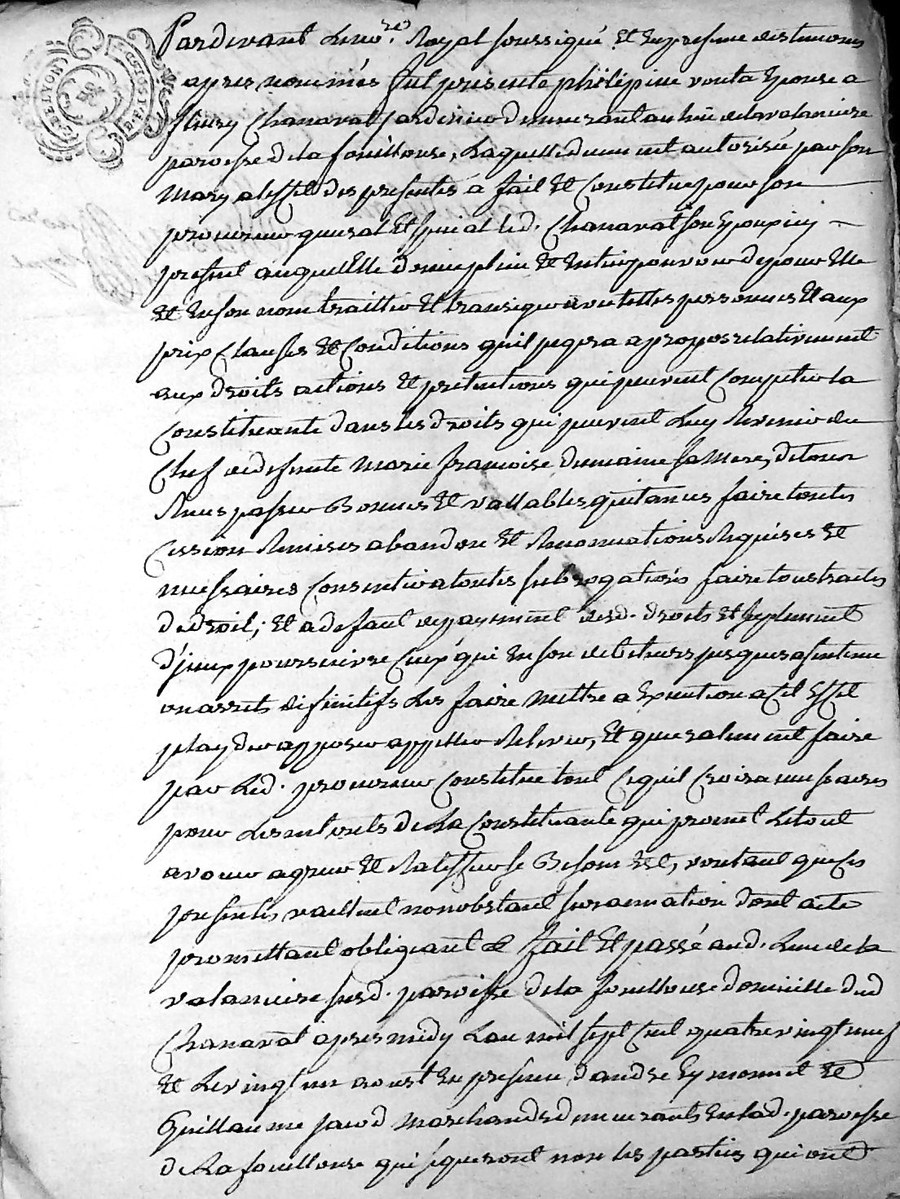 Pardevant Le no.re Royal soussigné Et En presence des temoins
apres nommés fut presente philipine vouta Epouse a
fleury Chanavat Jardinier demeurant au lieu de la valanciere
paroisse de la fouillouse, Laquelle dument autorisée par son
Mary a l'effet des presentes a fait Et Constitue pour son
procureur general Et special led. Chanavat son Epoux icy
present auquel Elle donne plein Et Entier pouvoir de pour Elle
Et En son nom traitter Et transiger avec telles personnes Et aux
prix Clauses Et Conditions qu'il jugera a propos relativement
aux droits actions Et pretentions qui peuvent Competer la
Constituante dans les droits qui peuvent Luy Revenir du
Chef de defunte Marie francoise dumaine sa Mere, de tous
Reçus passer Bonnes Et vallables quitances faire toutes
Cession Remises abandon Et Renonciations Requises Et
necessaires Consentir a toutes subrogations faire tous traites
de droit; Et a defaut de payement desd. droits Et supplement
d'jceux poursuivre Ceux qui En son debiteurs jusques a sentence
ou arrets definitifs Les faire mettre a Execution a C'il Effet
playder opposer appeller Relever, Et generalement faire
par Led. procureur Constitué tout Ce qu'il Croira necessaire
pour Les interets de La Constituante qui promet Le tout
avouer agreer Et Ratiffier se Besoin Est, voulant que Ces
presentes vaillent nonobstant surannation dont acte
promettant obligeant & fait Et passé aud. Lieu de la
valanciere susd. paroisse de la fouillouse domicille dud
Chanavat apres midy L'an mil sept Cent quatre vingt neuf
Et Le vingt un aoust En presence d'andre Eymonnet Et
Guillaume jacod Marchands demeurants En lad. paroisse
de La fouillouse qui signeront non les parties qui ont